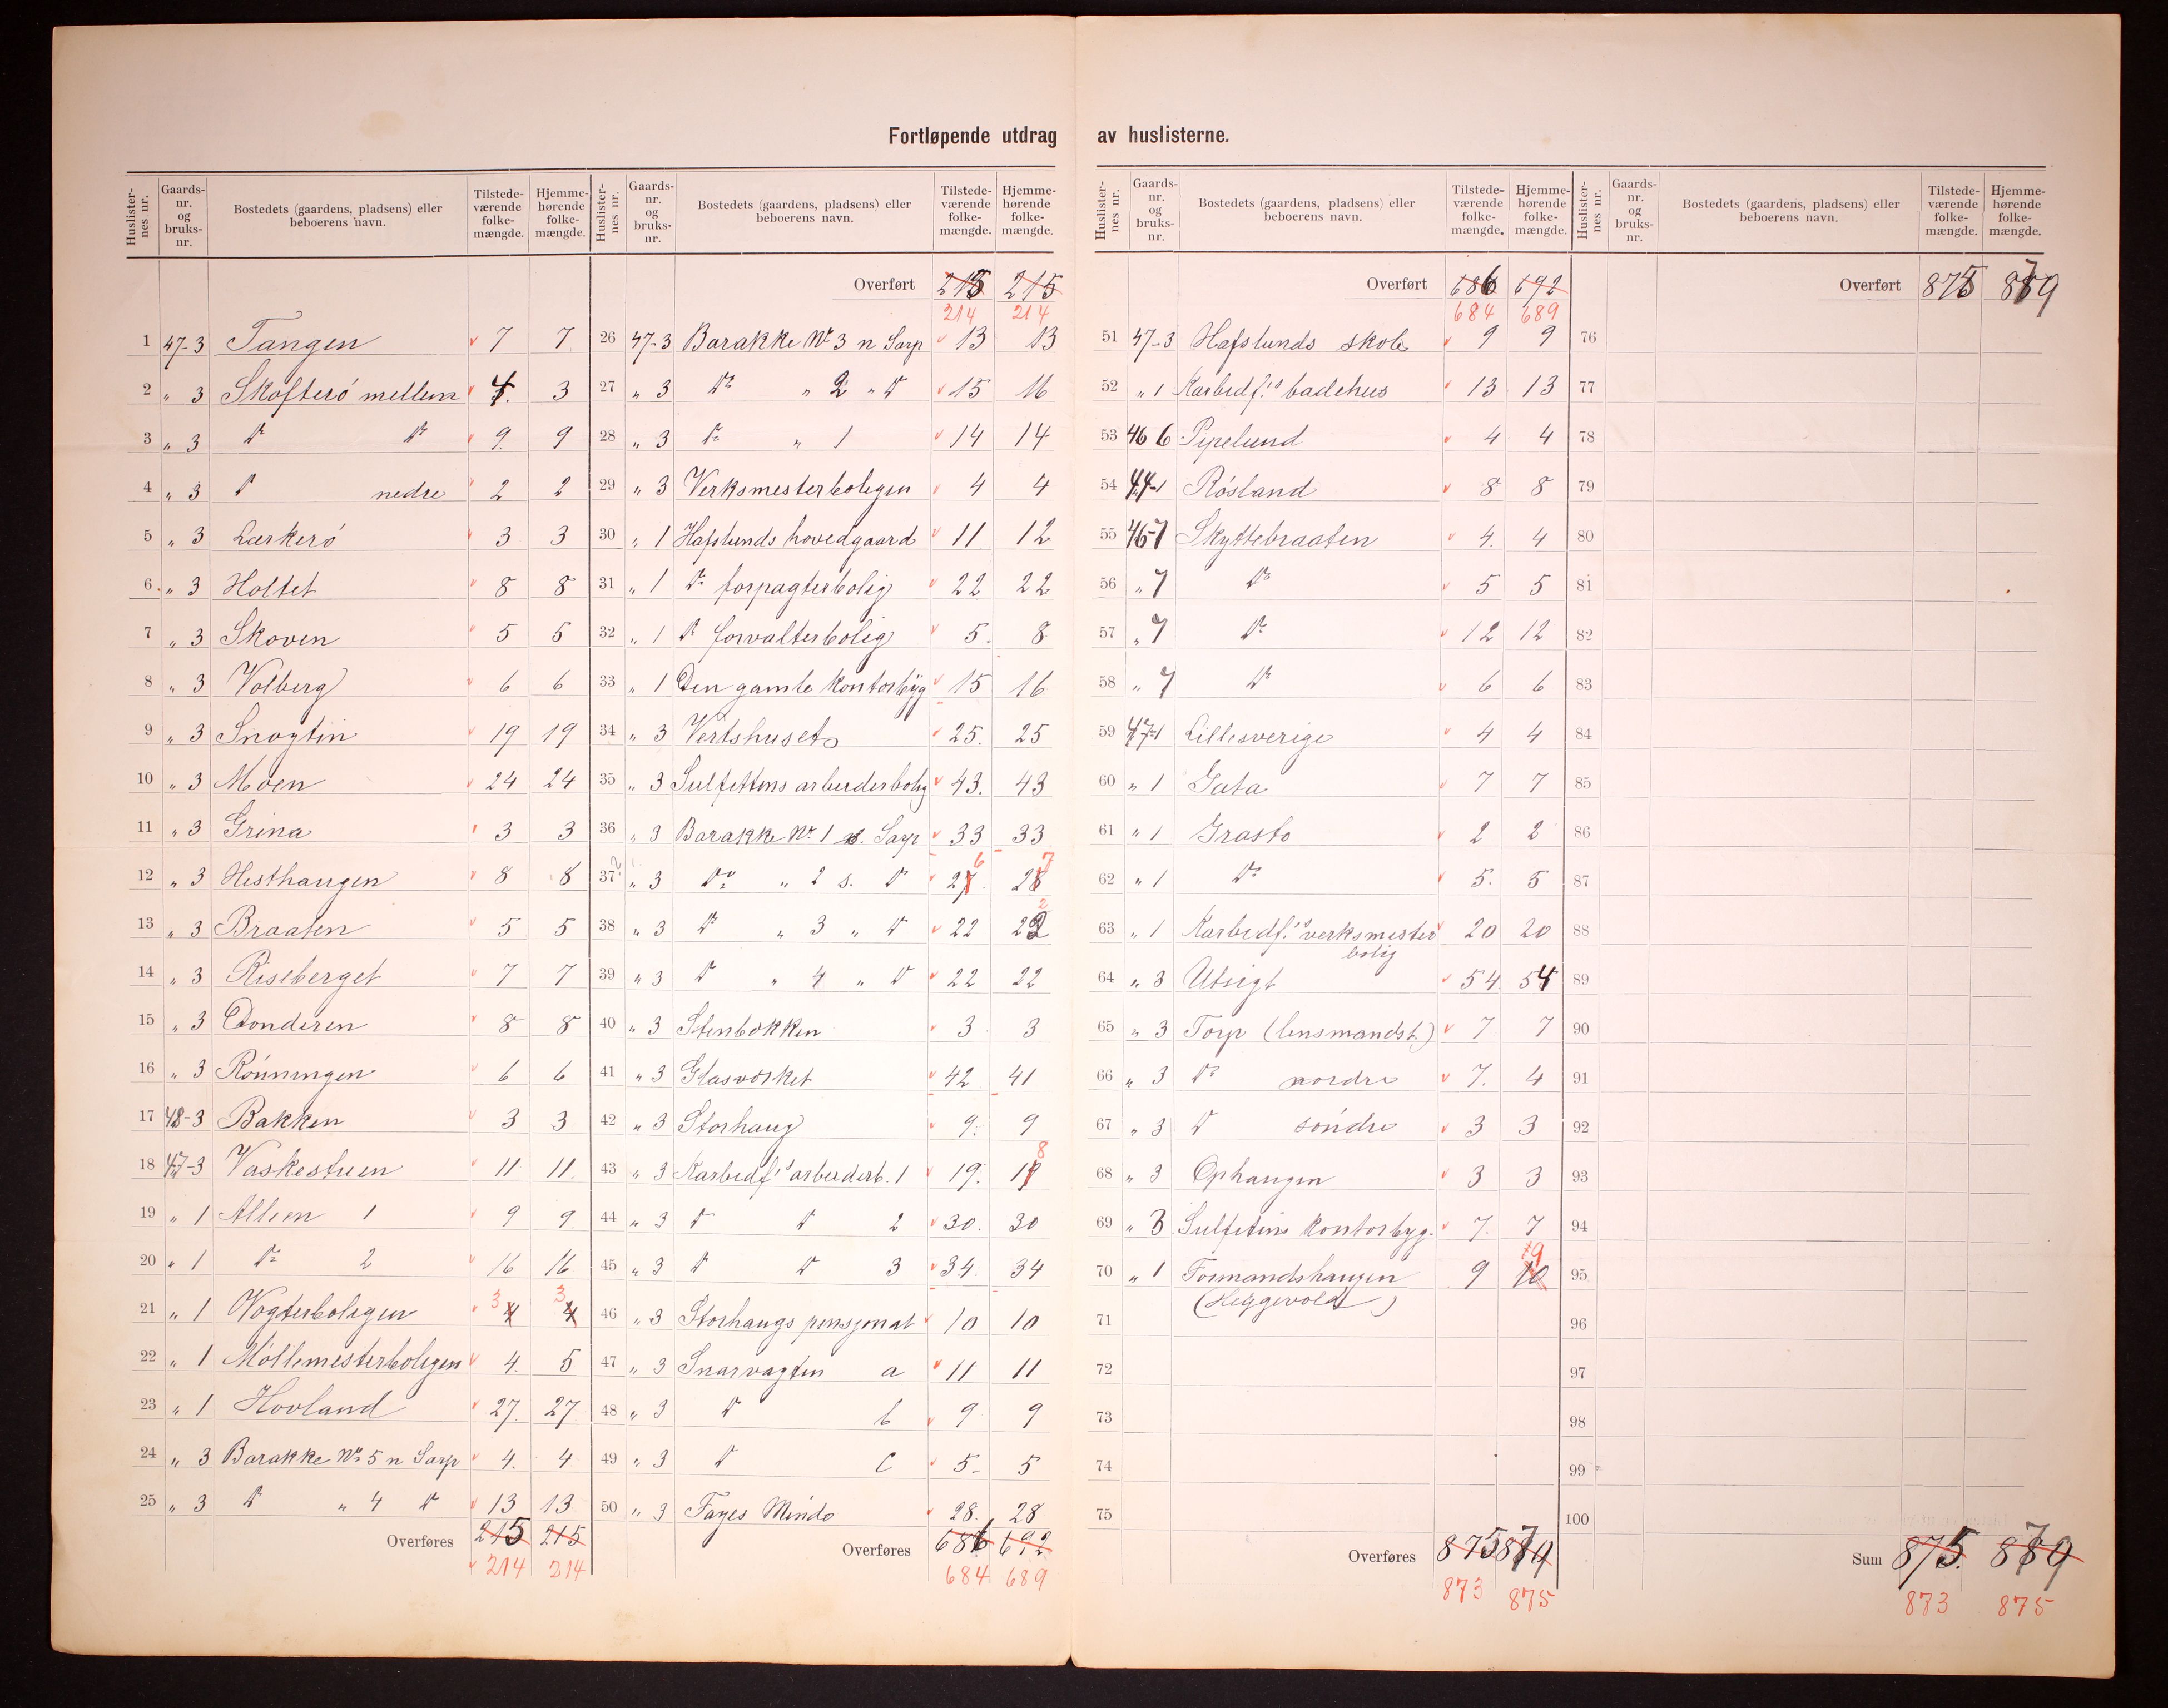 Fortløpende utdrag av huslisterne.
Huslisternes nr. Gaards-nr. og bruks-nr. Bostedets (gaardens, pladsens) eller beboerens navn. Tilstedeværende folkemængde. Hjemmehørende folkemængde.
1 47-3 Tangen 7 7
2 „ 3 Skofterö mellem 4. 3
3 „ 3 Do Do 9. 9
4 „ 3 Do nedre 2 2
5 „ 3 Lærkerö 3 3
6. „ 3 Holtet 8 8
7 „ 3 Skoven 5 5
8 „ 3 Volberg 6 6
9 „ 3 Snogtin 19 19
10 „ 3 Moen 24 24
11 „ 3 Grina 3 3
12 „ 3 Hesthaugen 8 8
13 „ 3 Braaten 5 5
14 „ 3 Riseberget 7 7
15 „ 3 Donderen 8 8
16 „ 3 Rönningen 6 6
17 48-3 Bakken 3 3
18 47-3 Vaskestuen 11 11.
19 „ 1 Alleen 1 9 9
20 „ 1 Do 2 16 16
21 „ 1 Vogterboligen 3 4 3 4
22 „ 1 Möllemesterboligen 4. 5
23 „ 1 Hovland 27. 27
24 „ 3 Barakke No 5 n Sarp 4. 4
25 „ 3 Do „ 4 Do 13 13
Overføres 215 215
214 214
Huslisternes nr. Gaards-nr. og bruks-nr. Bostedets (gaardens, pladsens) eller beboerens navn. Tilstedeværende folkemængde. Hjemmehørende folkemængde.
Overført 215 215
214 214
26 47-3 Barakke No 3 n Sarp 13 13
27 „ 3 Do „ 2 „ Do 15 16
28 „ 3 Do „ 1 14 14
29 „ 3 Verksmesterboligen 4 4
30 „ 1 Hafslunds hovedgaard 11 12
31 „ 1 Do forpagterbolig 22 22
32 „ 1 Do forvalterbolig 5. 8
33 „ 1 Den gamle kontorbyg 15 16
34 „ 3 Vertshuset 25. 25
35 „ 3 Sulfittens arbeiderbolig 43. 43
36 „ 3 Barakke No 1 s. Sarp 33 33
37 „ 3 Do „ 2 s. Do 27 6 28 7
38 „ 3 Do „ 3 „ Do 22 22 2
39 „ 3 Do „ 4 „ Do 22 22
40 „ 3 Stenbekken 3 3
41 „ 3 Glasverket 42 41
42 „ 3 Storhaug 9. 9
43 „ 3 Karbidf.s arbeiderb. 1 19. 19 8
44 „ 3 Do Do 2 30. 30
45 „ 3 Do Do 3 34. 34
46 „ 3 Storhaugs pensjonat 10 10
47 „ 3 Snarvagten a 11 11
48 „ 3 Do b 9 9
49 „ 3 Do c 5- 5
50 „ 3 Fayes Minde 28. 28
Overføres 686 692
684 689
Huslisternes nr. Gaards-nr. og bruks-nr. Bostedets (gaardens, pladsens) eller beboerens navn. Tilstedeværende folkemængde. Hjemmehørende folkemængde.
Overført 686 692
684 689
51 47-3 Hafslunds skole 9 9
52 „ 1 Karbidf.s badehus 13 13
53 46 6 Pipelund 4 4
54 44-1 Rösland 8 8
55 46-7 Skyttebraaten 4. 4
56 „ 7 Do 5 5
57 „ 7 Do 12 12
58 „ 7 Do 6 6
59 47-1 Lillesverige 4 4
60 „ 1 Gata 7 7
61 „ 1 Grasto 2 2
62 „ 1 Do 5. 5
63 „ 1 Karbidf.s verksmester 20 20
bolig
64 „ 3 Utsigt 54. 54
65 „ 3 Torp (lensmandst.) 7 7
66 „ 3 Do nordre 7. 4
67 „ 3 Do söndre 3 3
68 „ 3 Ophaugen 3 3
69 „ 3 Sulfitens kontorbyg. 7. 7
70 „ 1 Formandshaugen 9 10 9
(Heggevold)
71
72
73
74
75
Overføres 875 879
873 875
Huslisternes nr. Gaards-nr. og bruks-nr. Bostedets (gaardens, pladsens) eller beboerens navn. Tilstedeværende folkemængde. Hjemmehørende folkemængde.
Overført 875 879
76
77
78
79
80
81
82
83
84
85
86
87
88
89
90
91
92
93
94
95
96
97
98
99
100
Sum 875. 879
873 875